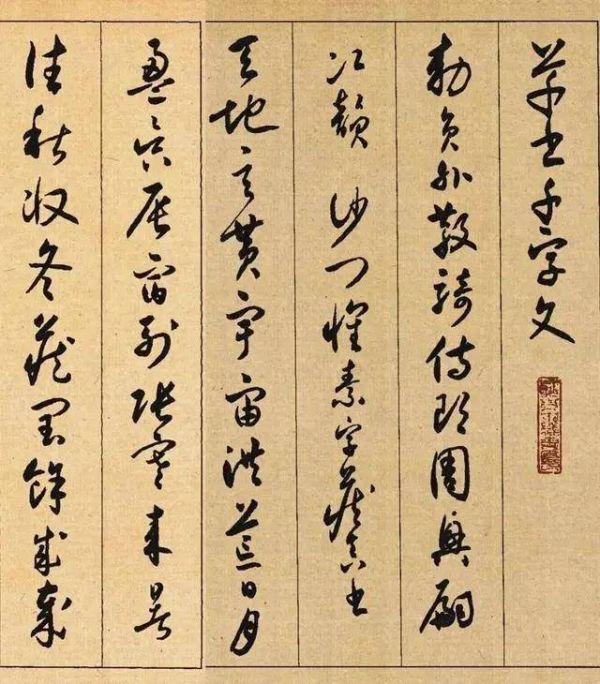 草書千字文
勅員外散騎侍郎周興嗣
次韻 沙門懷素字藏真書
天地玄黃宇宙洪荒日月
盈昃辰宿列張寒來暑
往秋收冬藏閏餘成歲